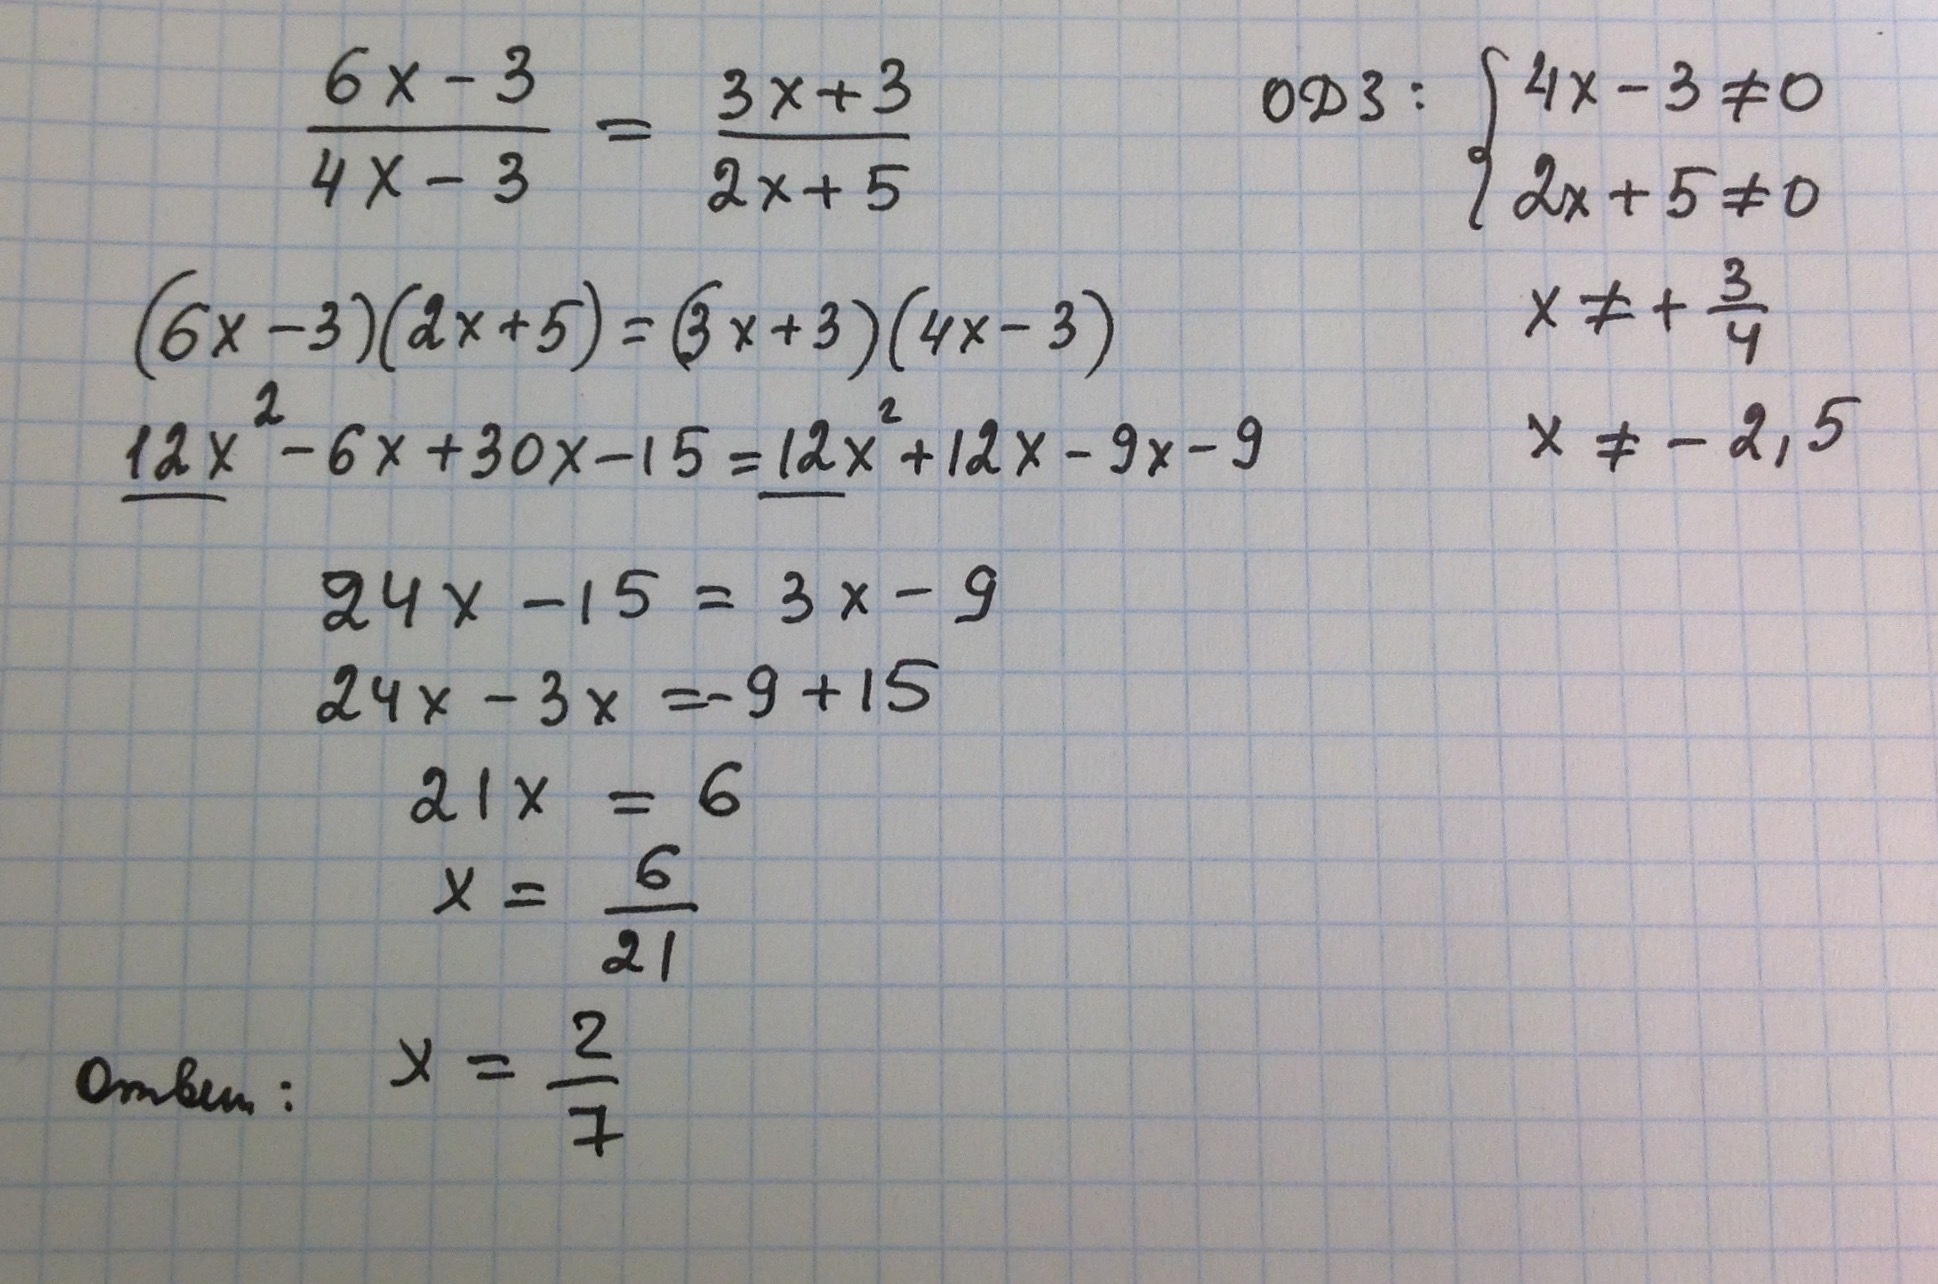 (6x - 3)/(4x - 3) = (3x + 3)/(2x + 5)
ОДЗ: { 4x - 3 ≠ 0
2x + 5 ≠ 0
x ≠ + 3/4
x ≠ - 2,5
(6x - 3)(2x + 5) = (3x + 3)(4x - 3)
12x² - 6x + 30x - 15 = 12x² + 12x - 9x - 9
24x - 15 = 3x - 9
24x - 3x = -9 + 15
21x = 6
x = 6/21
Ответ: x = 2/7